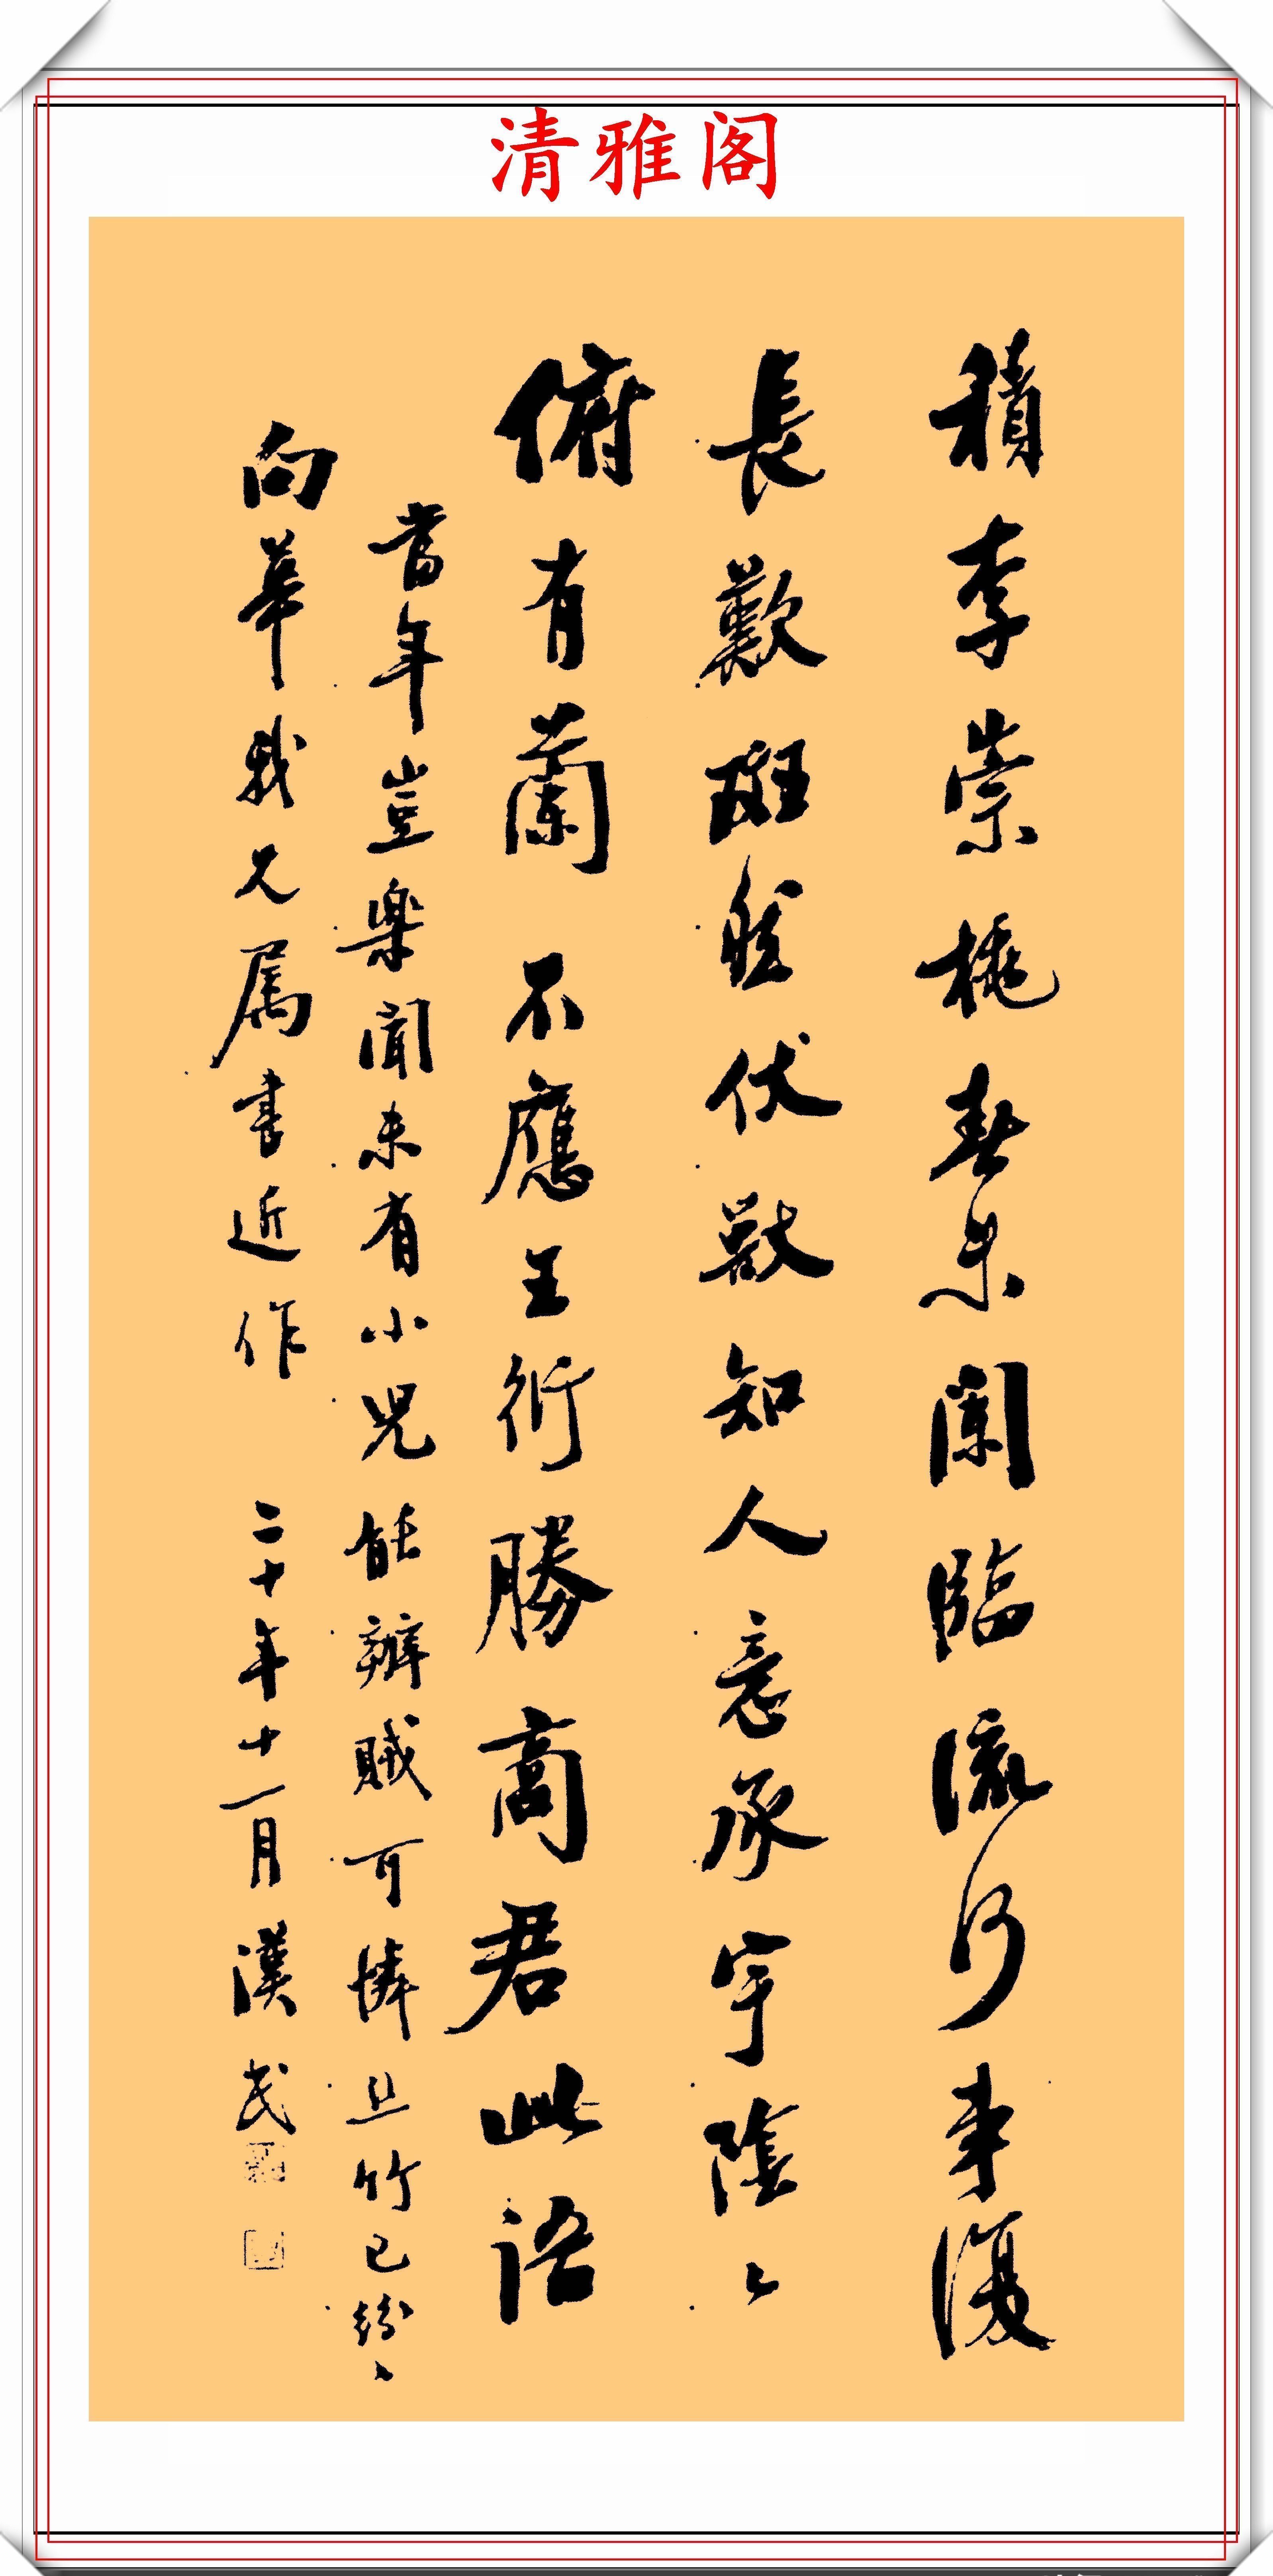 清雅阁
積李崇桃春未闌臨流何事復
長歎斑然伏獸知人意承宇陰々
俯有蘭不應王衍勝商君此語
當年豈樂聞未有小兒能辦賊可憐竹已紛々
向華我兄屬書近作 二十年十一月漢民